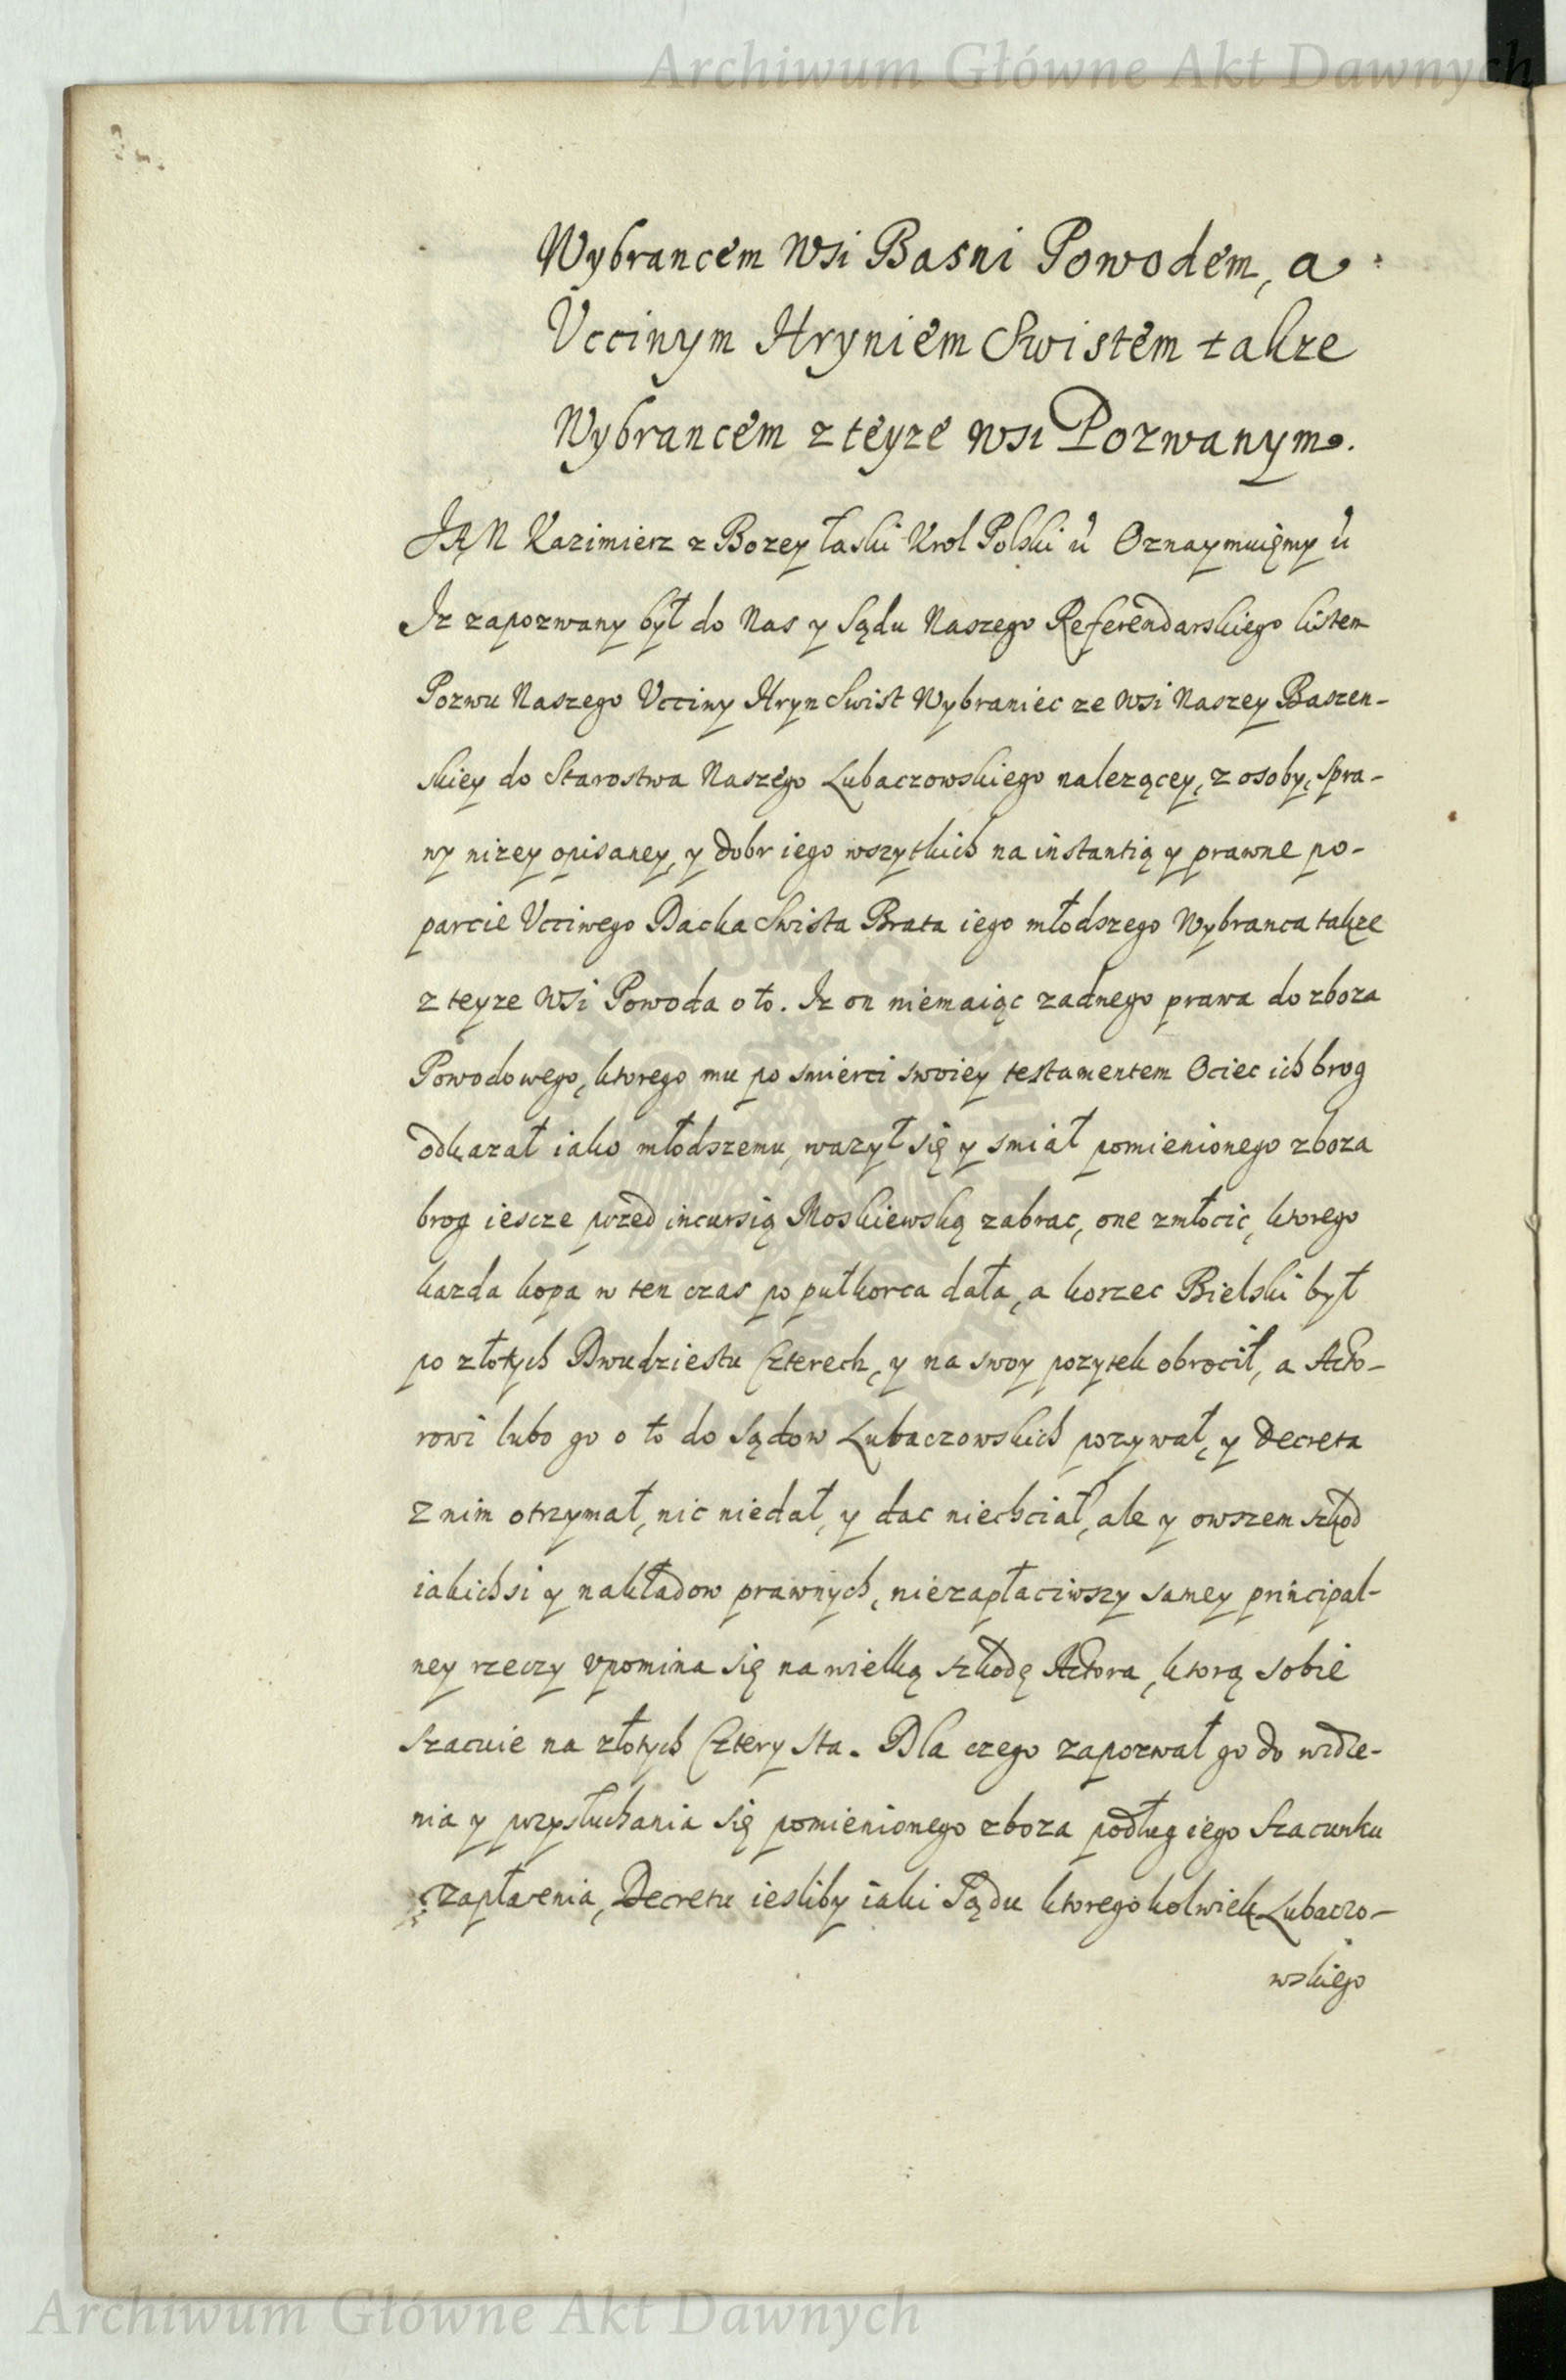 Archiwum Główne Akt Dawnych
Wybrancem Wsi Basni Powodem, a
Vccinym Hryniem Swistem takze
Wybrancem z teyze wsi Pozwanym.
JAN Kazimierz z Bozey łaski Krol Polski &c Oznaymuięmy &c
Iz zapozwany był do Nas y Sądu Naszego Referendarskiego listem
Pozwu Naszego Vcciny Hryn Swist Wybraniec ze Wsi Naszey Baszen-
skiey do Starostwa Naszego Lubaczowskiego nalezącey, z osoby, spra-
wy nizey opisaney, y dobr iego wszytkich na instantią y prawne po-
parcie Vcciwego Dacka Swista Brata iego młodszego Wybranca takze
z teyze Wsi Powoda o to. Iz on niemaiąc zadnego prawa do zboza
Powodowego, ktorego mu po smierci swoiey testamentem Ociec ich brog
odkazał iako młodszemu, wazył się y smiał pomienionego zboza
brog iescze przed incursią Moskiewską zabrac, one zmłocic, ktorego
kazda kopa w ten czas po pułkorca dała, a korzec Bielski był
po złotych Dwudziestu Czterech, y na swoy pozytek obrocił, a Acto-
rowi lubo go o to do sądow Lubaczowskich pozywał, y Decreta
z nim otrzymał, nic niedał, y dac niechciał, ale y owszem szkod
iakichsi y nakładow prawnych, niezapłaciwszy samey principal-
ney rzeczy vpomina się na wielką szkodę Actora, ktorą sobie
szacuie na złotych Cztery sta. Dla czego zapozwał go do widze-
nia y przysłuchania się pomienionego zboza podług iego Szacunku
zapłacenia, Decretu iesliby iaki Sądu ktoregokolwiek Lubaczo-
wskiego
Archiwum Główne Akt Dawnych